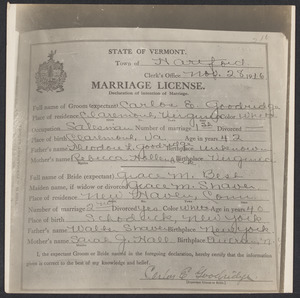 STATE OF VERMONT.
Town of Hartford
Clerk's Office Nov. 26 1926
MARRIAGE LICENSE.
Declaration of Intention of Marriage.
Full name of Groom (expectant) Carlos E. Goodridge
Place of residence Claremont, Virginia Color White
Occupation Salesman Number of marriage Divorced
Place of birth Claremont, Va. Age 42
Father's name Theodore Goodridge Birthplace unknown
Mother's name Rebecca Birthplace Virginia
Full name of Bride (expectant) Grace M. Best
Maiden name, if widow or divorced Grace M.
Place of residence New Haven, Conn.
Number of marriage 2 Divorced Yes Color White Age 40
Place of birth New York
Father's name Birthplace New York
Mother's name Sarah Hall Birthplace
I, the expectant Groom or Bride named in the foregoing declaration, hereby certify that the information
given is correct to the best of my knowledge and belief.
Carlos E. Goodridge